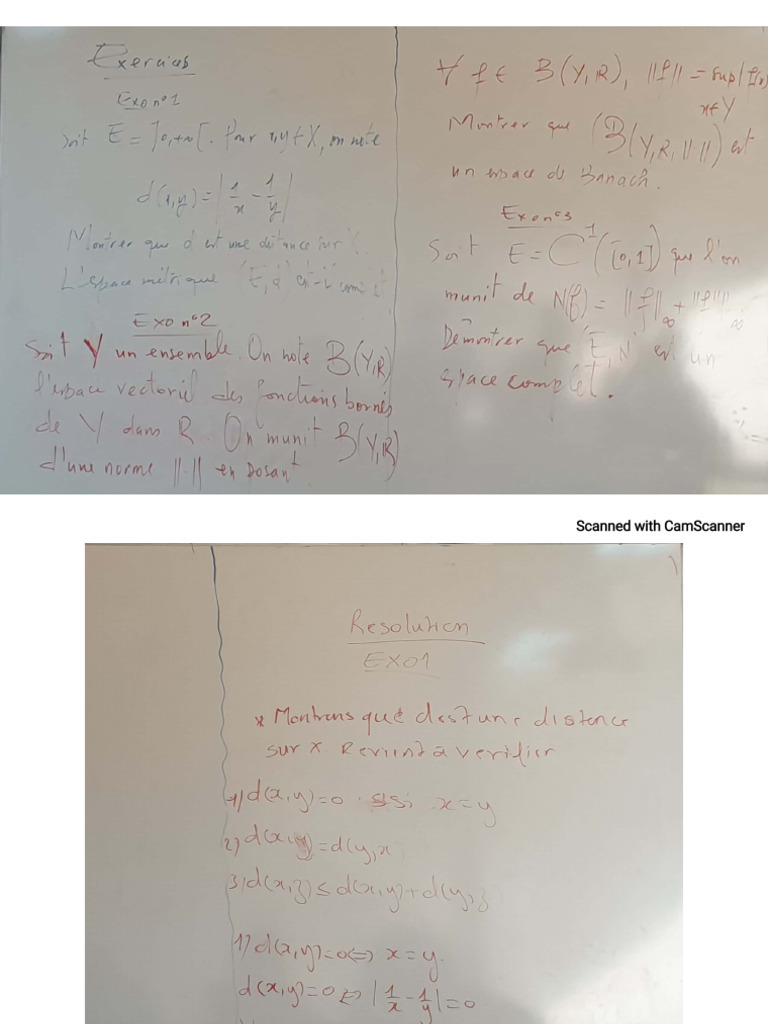 Exercices
Exo n°1
Soit E = ]0,+∞[. Pour x,y ∈ X, on note
d(x,y) = |1/x - 1/y|
Montrer que d est une distance sur X.
L'espace métrique (E,d) est-il complet
EXO n°2
Soit Y un ensemble. On note B(Y,R)
l'espace vectoriel des fonctions bornés
de Y dans R. On munit B(Y,R)
d'une norme ||.|| en posant
∀ f ∈ B(Y,R), ||f|| = sup|f(x)
x∈Y
Montrer que (B(Y,R,||·||) est
un espace de Banach.
Exo n°3
Soit E = C¹([0,1]) que l'on
munit de N(f) = ||f||∞ + ||f'||∞
Démontrer que E,N est un
espace complet.
Scanned with CamScanner
Resolution
EXO1
* Montrons que d est une distence
sur X Revient à verifier
1) d(x,y)=0 ssi x=y
2) d(x,y)=d(y,x
3) d(x,z)≤d(x,y)+d(y,z
1) d(x,y)=0⇔ x=y.
d(x,y)=0⇔ |1/x - 1/y|=0